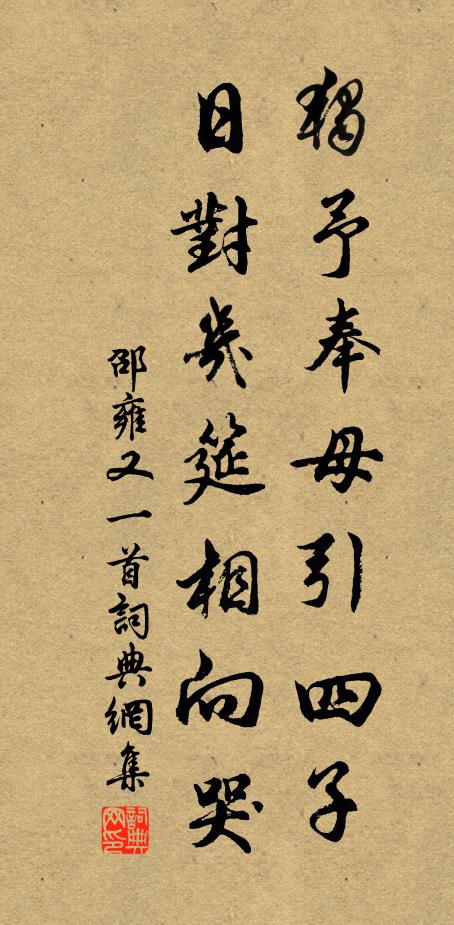 獨予奉母引四子
日對几筵相向哭
邵雍又一首詞典網集
詞典网印